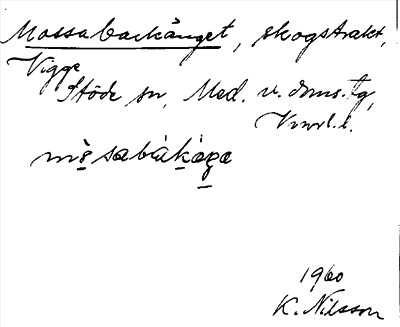 Mossabackänget, skogstrakt,
Vigge
Stöde sn, Med. v. doms. tg,
Vnrl. l.
mɷsabàkǝŋǝ
1960
K. Nilsson